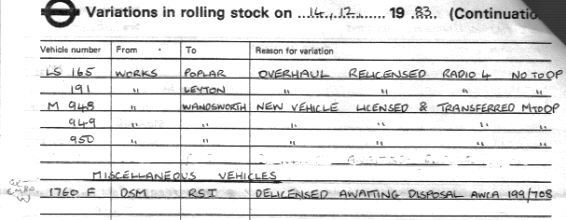 Variations in rolling stock on 14.12. 19 83. (Continuatio
Vehicle number From To Reason for variation
LS 165 WORKS POPLAR OVERHAUL RELICENSED RADIO 4 NO TO OP
191 " LEYTON " " " "
M 948 " WANDSWORTH NEW VEHICLE LICENSED & TRANSFERRED M TO OP
949 " " " " "
950 " " " " "
MISCELLANEOUS VEHICLES
1760 F OSM RSI DELICENSED AWAITING DISPOSAL AWCA 199/708